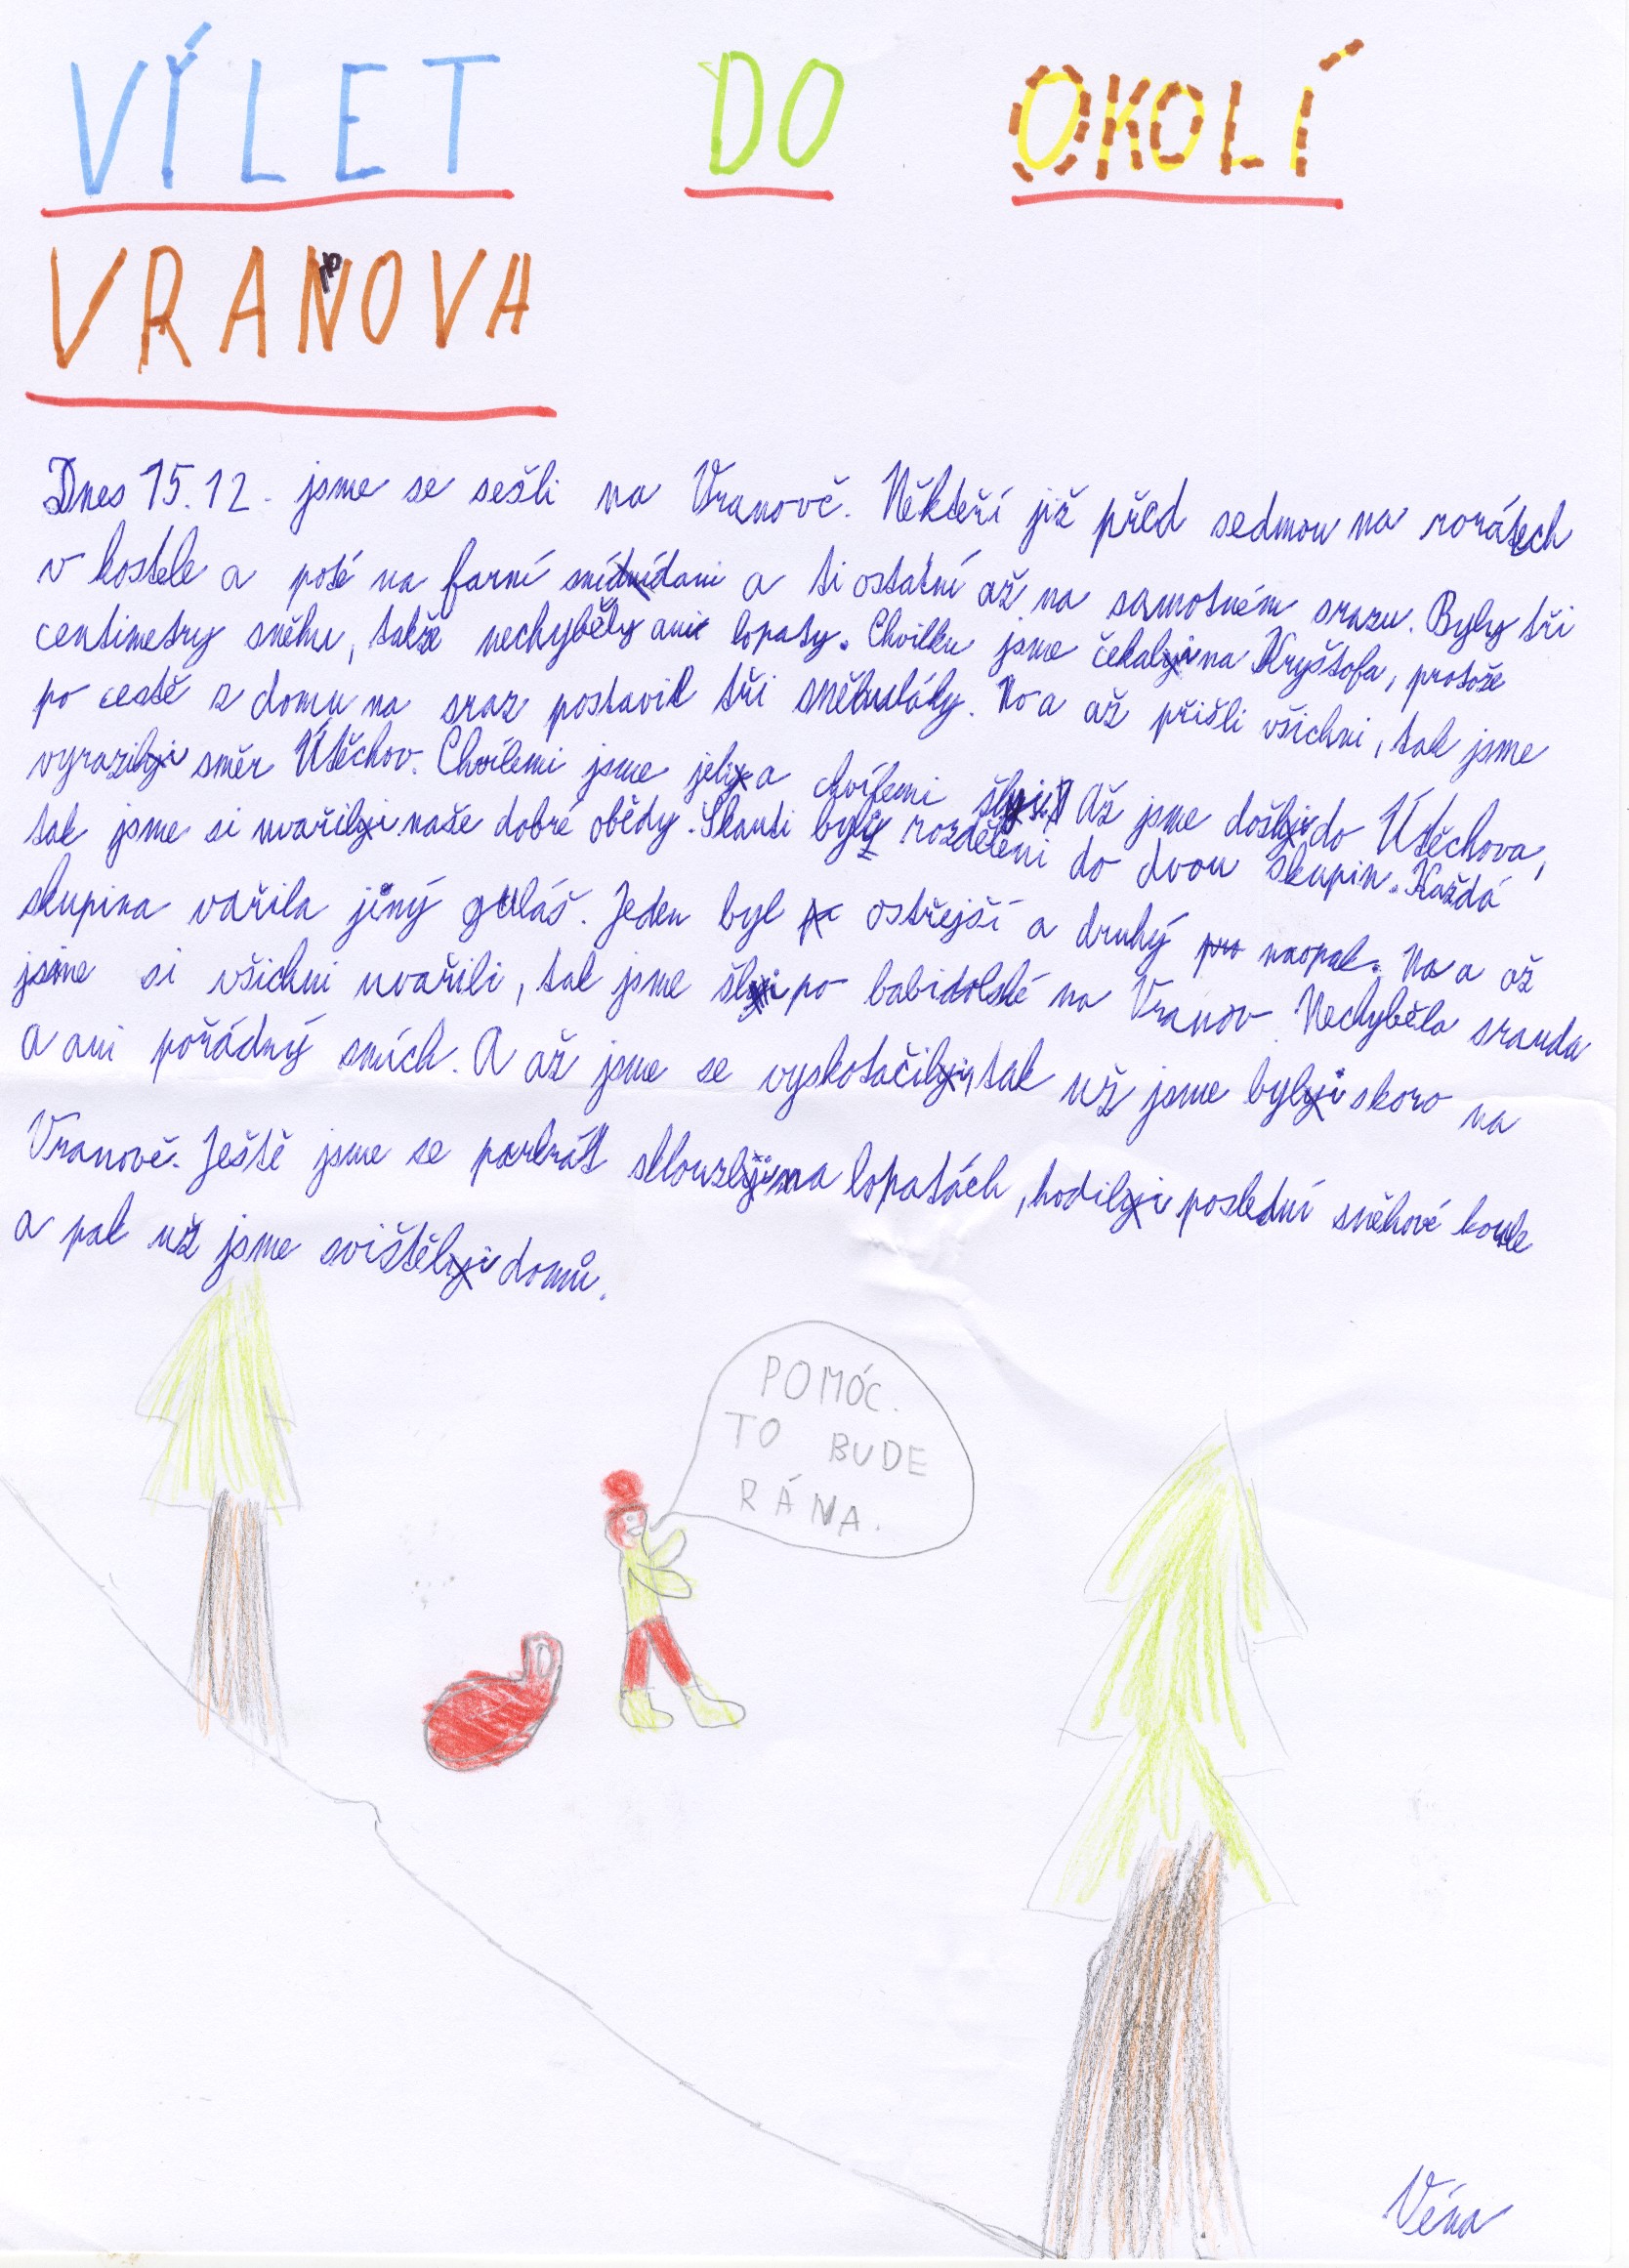 VÝLET DO OKOLÍ
VRANOVA
Dnes 15.12. jsme se sešli na Vranově. Někteří již před sedmou na rorátech
v kostele a poté na farní snídani a ti ostatní až na samotném srazu. Byly tři
centimetry sněhu, takže nechyběly ani lopaty. Chvilku jsme čekali na Kryštofa, protože
po cestě z domu na sraz postavil tři sněhuláky. No a až přišli všichni, tak jsme
vyrazili směr Útěchov. Chvílemi jsme jeli a chvílemi šli. Až jsme došli do Útěchova,
tak jsme si uvařili naše dobré obědy. Skauti byli rozděleni do dvou skupin. Každá
skupina vařila jiný guláš. Jeden byl ostřejší a druhý naopak. No a až
jsme si všichni uvařili, tak jsme šli po babidolské na Vranov. Nechyběla sranda
a ani pořádný smích. A až jsme se vyskotačili, tak už jsme byli skoro na
Vranově. Ještě jsme se párkrát sklouzli na lopatách, hodili poslední sněhové koule
a pak už jsme svištěli domů.
POMÓC.
TO BUDE
RÁNA.
Véna